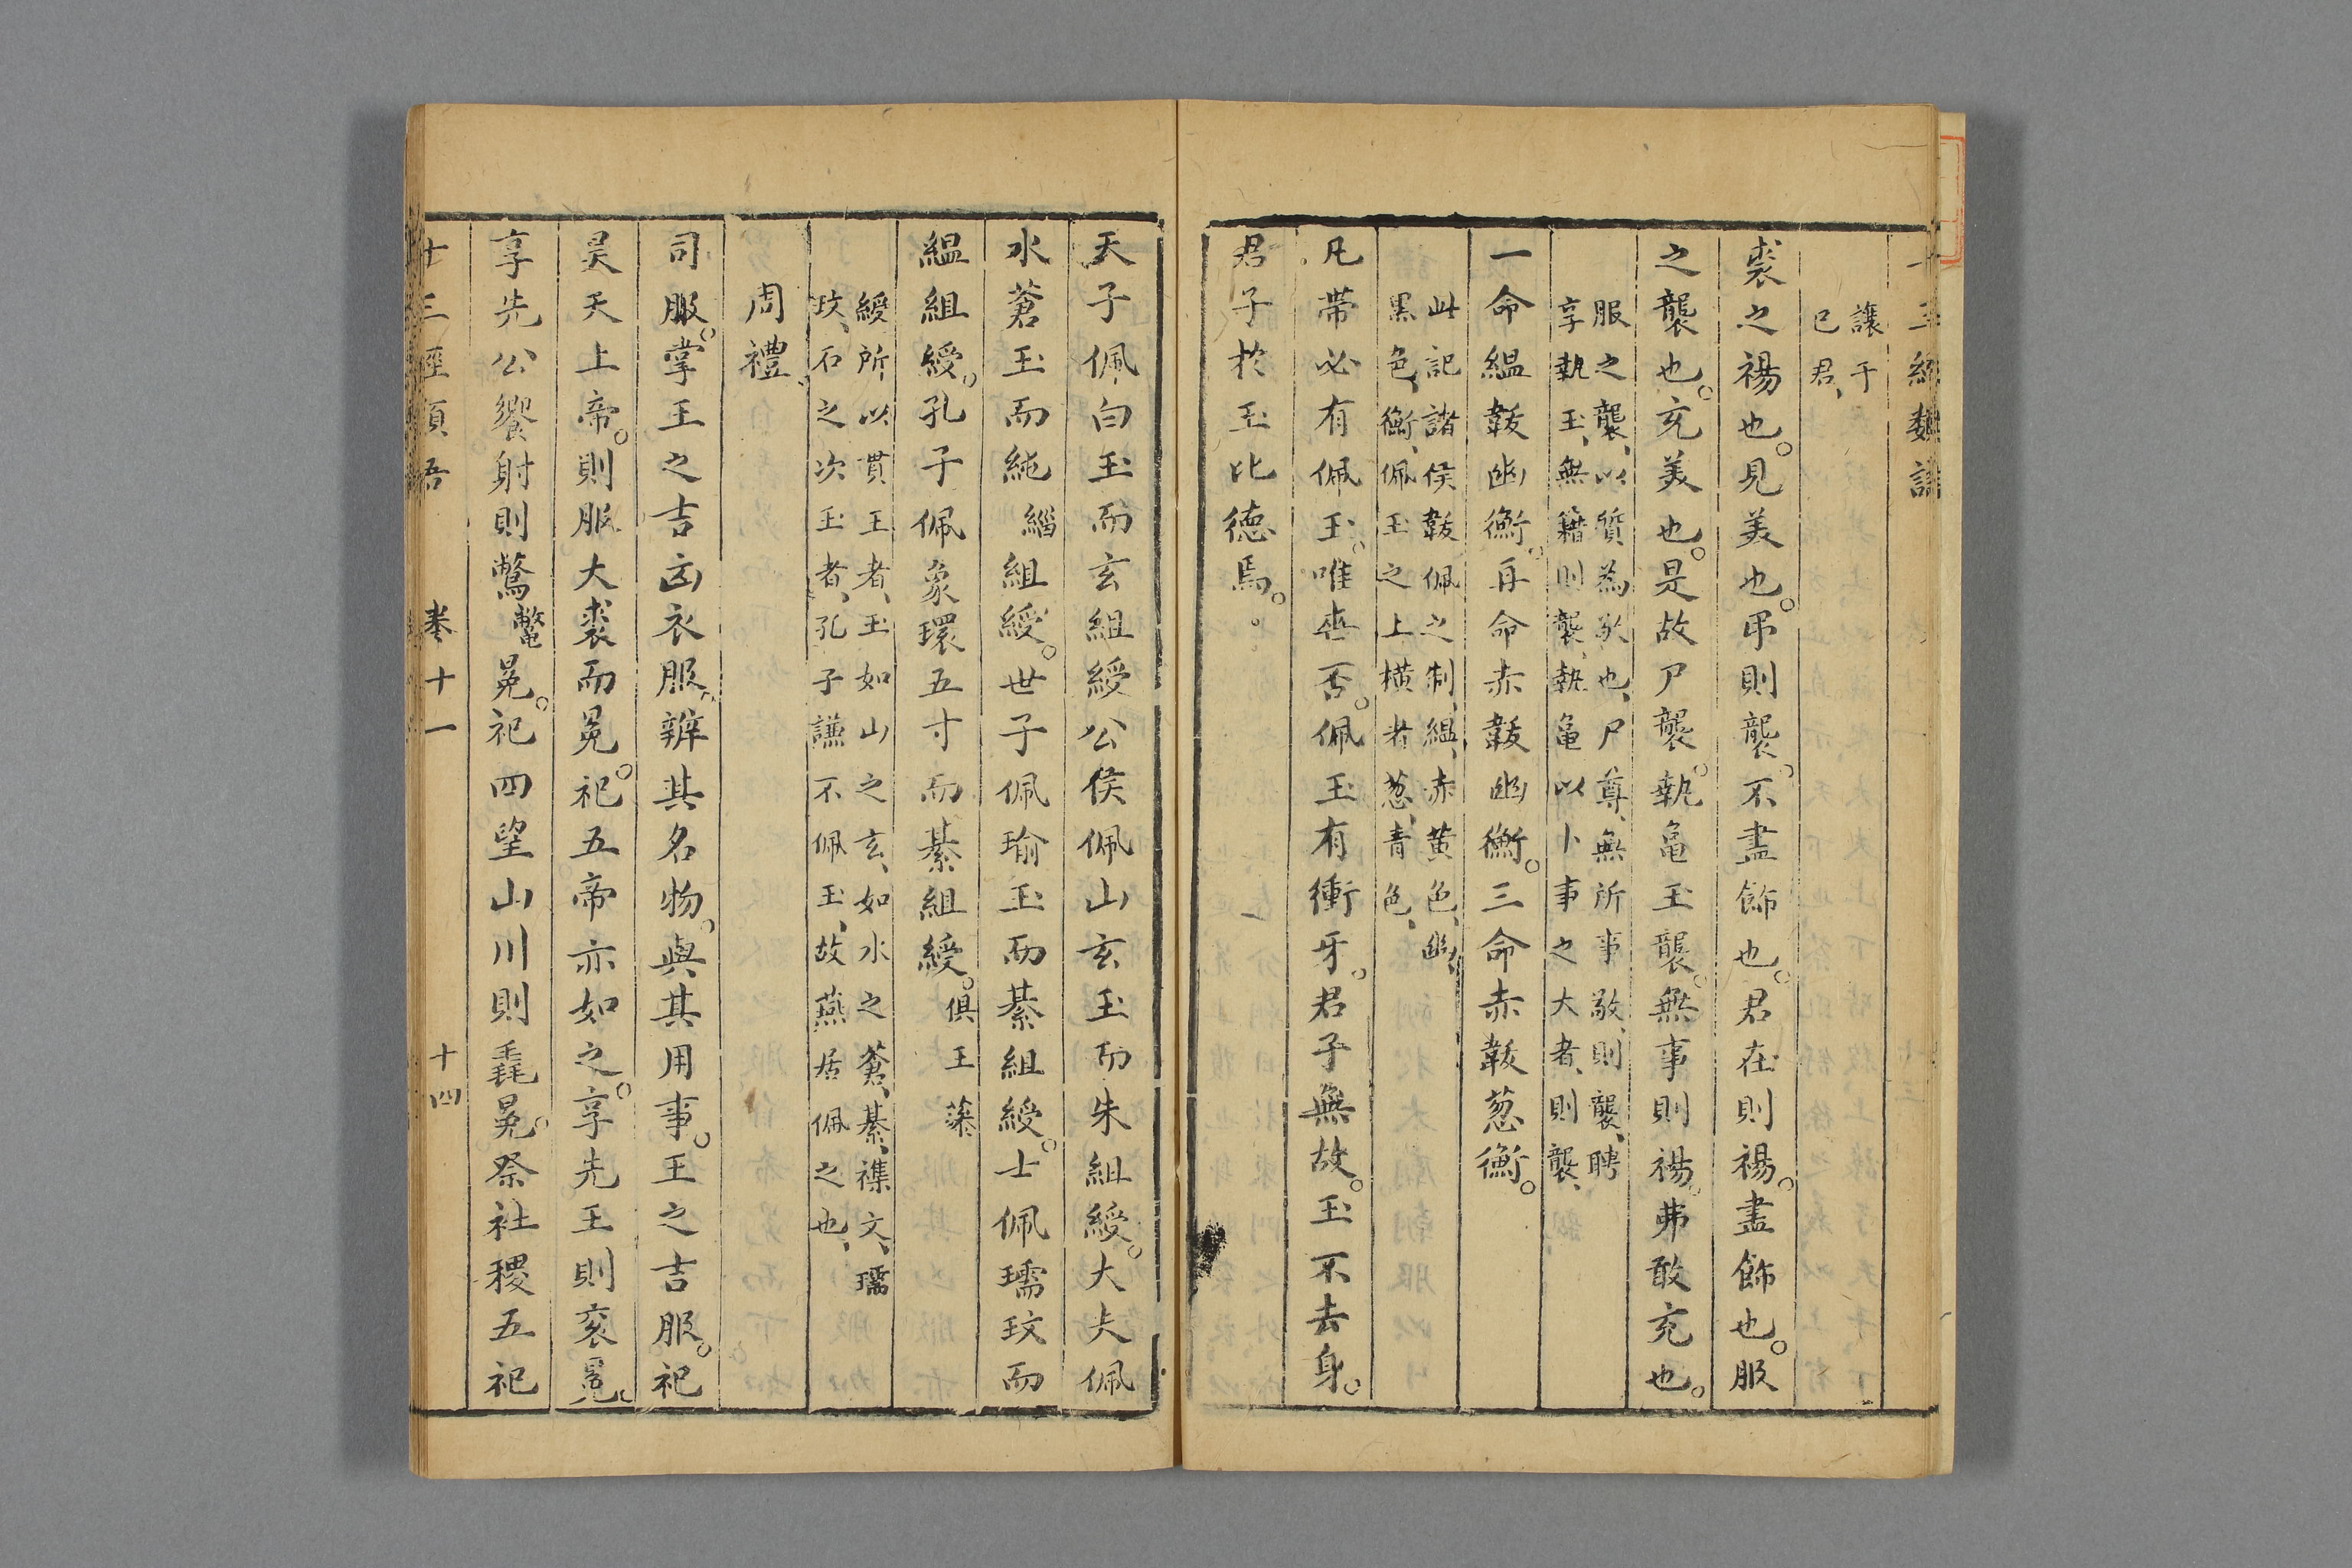 讓于
已君、
裘之裼也。見美也。弔則襲。不盡飾也。君在則裼。盡飾也。服
之襲也。充美也。是故尸襲。執亀玉襲。無事則裼。弗敢充也。
服之襲、以質為敬也、尸尊、無所事敬、則襲、聘
享執玉、無籍則襲、執亀以卜事之大者、則襲、
一命緼韍幽衡。再命赤韍幽衡。三命赤韍葱衡。
此記諸侯韍佩之制、緼、赤黄色、幽、
黒色、衡、佩玉之上横者、葱、青色、
凡帯必有佩玉。唯喪否。佩玉有衝牙。君子無故。玉不去身。
君子於玉比徳焉。。
天子佩白玉而玄組綬公侯佩山玄玉而朱組綬。大夫佩
水蒼玉而純緇組綬。世子佩瑜玉而綦組綬。士佩瓀玟而
緼組綬。孔子佩象環五寸而綦組綬。俱玉藻
綬所以貫玉者、玉如山之玄、如水之蒼、綦、襍文、瓀
玟、石之次玉者、孔子謙不佩玉、故燕居佩之也、
周禮、
司服。掌王之吉凶衣服。辨其名物。與其用事。王之吉服。祀
昊天上帝。則服大裘而冕。祀五帝亦如之。享先王則衮冕。
享先公饗射則鷩鼈冕。祀四望山川則毳冕。祭社稷五祀
十三經頂吾 巻十一 十四